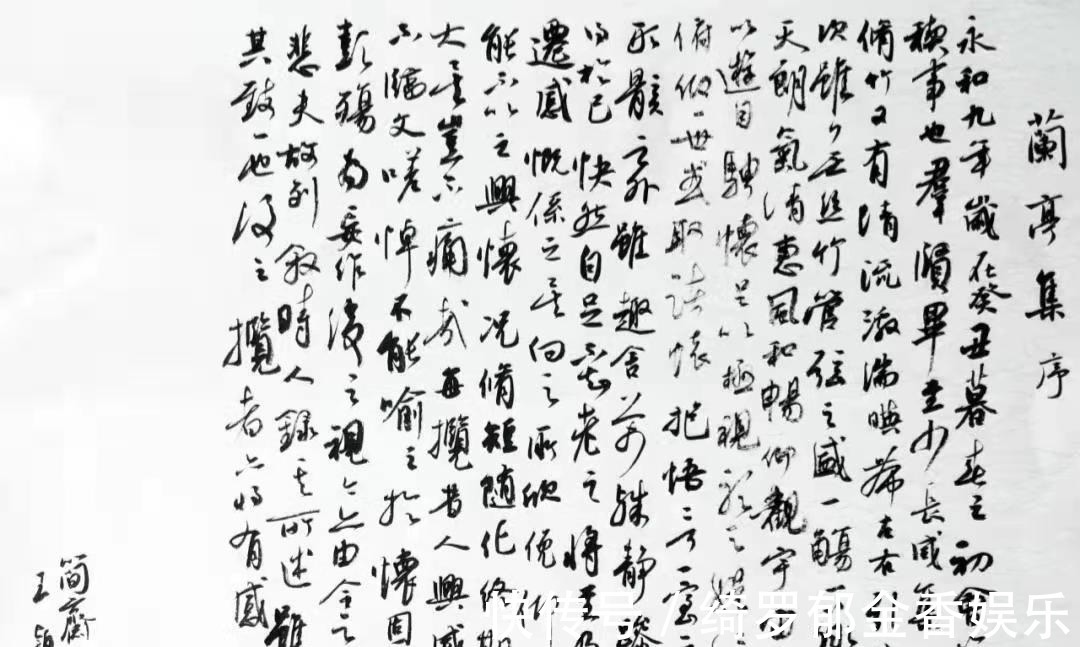 蘭亭集序
永和九年歲在癸丑暮春之初會
稧事也羣賢畢至少長咸集
脩竹又有清流激湍暎帶左右
次雖無絲竹管弦之盛一觴一
天朗氣清惠風和暢仰觀宇宙
以遊目騁懷足以極視聽之娛
俯仰一世或取諸懷抱悟言一室
形骸之外雖趣舍萬殊靜躁
得於己快然自足不知老之將至
遷感慨係之矣向之所欣俛仰
能不以之興懷況脩短隨化終期
大矣豈不痛哉每攬昔人興感
不臨文嗟悼不能喻之於懷固
彭殤為妄作後之視今亦由今之
悲夫故列敘時人錄其所述雖
其致一也後之攬者亦將有感
簡齋
王
快传号/绮罗郁金香娱乐